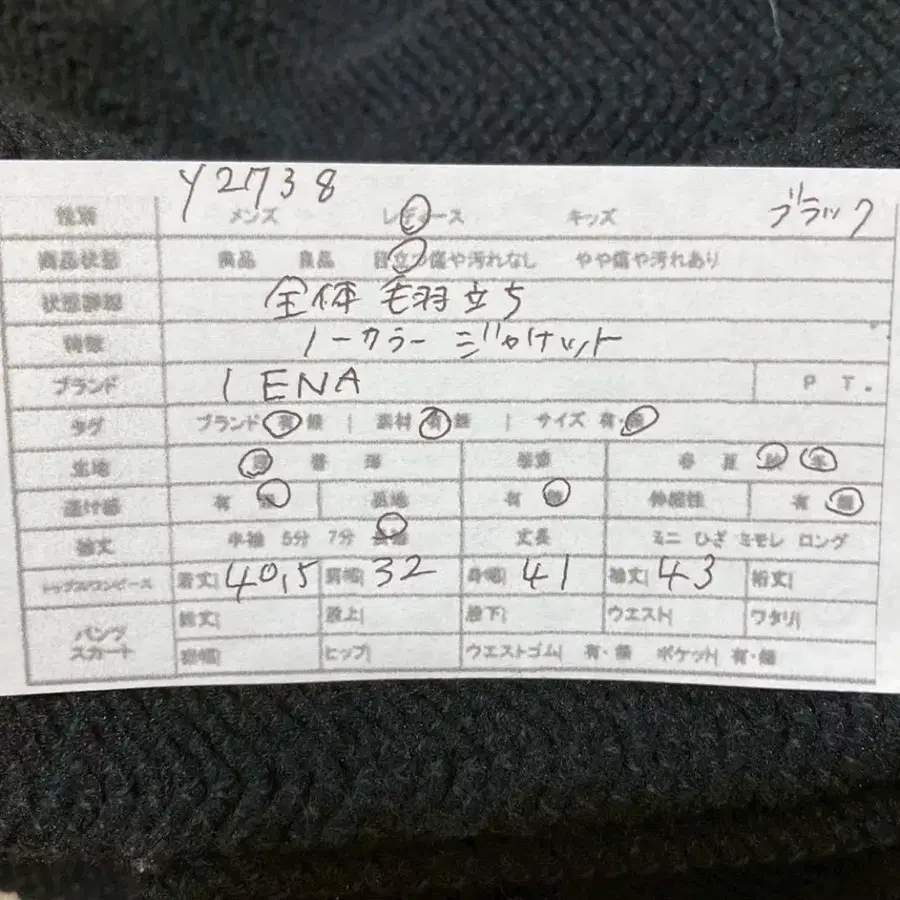 Y2738
性別 メンズ レディース キッズ ブラック
商品状態 美品 良品 目立つ傷や汚れなし やや傷や汚れあり
状態詳細 全体 毛羽立ち
特徴 ノーカラー ジャケット
ブランド IENA P T.
タグ ブランド 有 無 | 素材 有 無 | サイズ 有・無
生地 厚 普 薄 季節 春 夏 秋 冬
透け感 有 無 裏地 有 無 伸縮性 有 無
袖丈 半袖 5分 7分 長袖 丈長 ミニ ひざ ミモレ ロング
トップス/ワンピース 着丈| 40,5 肩幅| 32 身幅| 41 袖丈| 43 裄丈|
パンツ スカート 総丈| 股上| 股下| ウエスト| ワタリ|
裾幅| ヒップ| ウエストゴム| 有・無 ポケット| 有・無